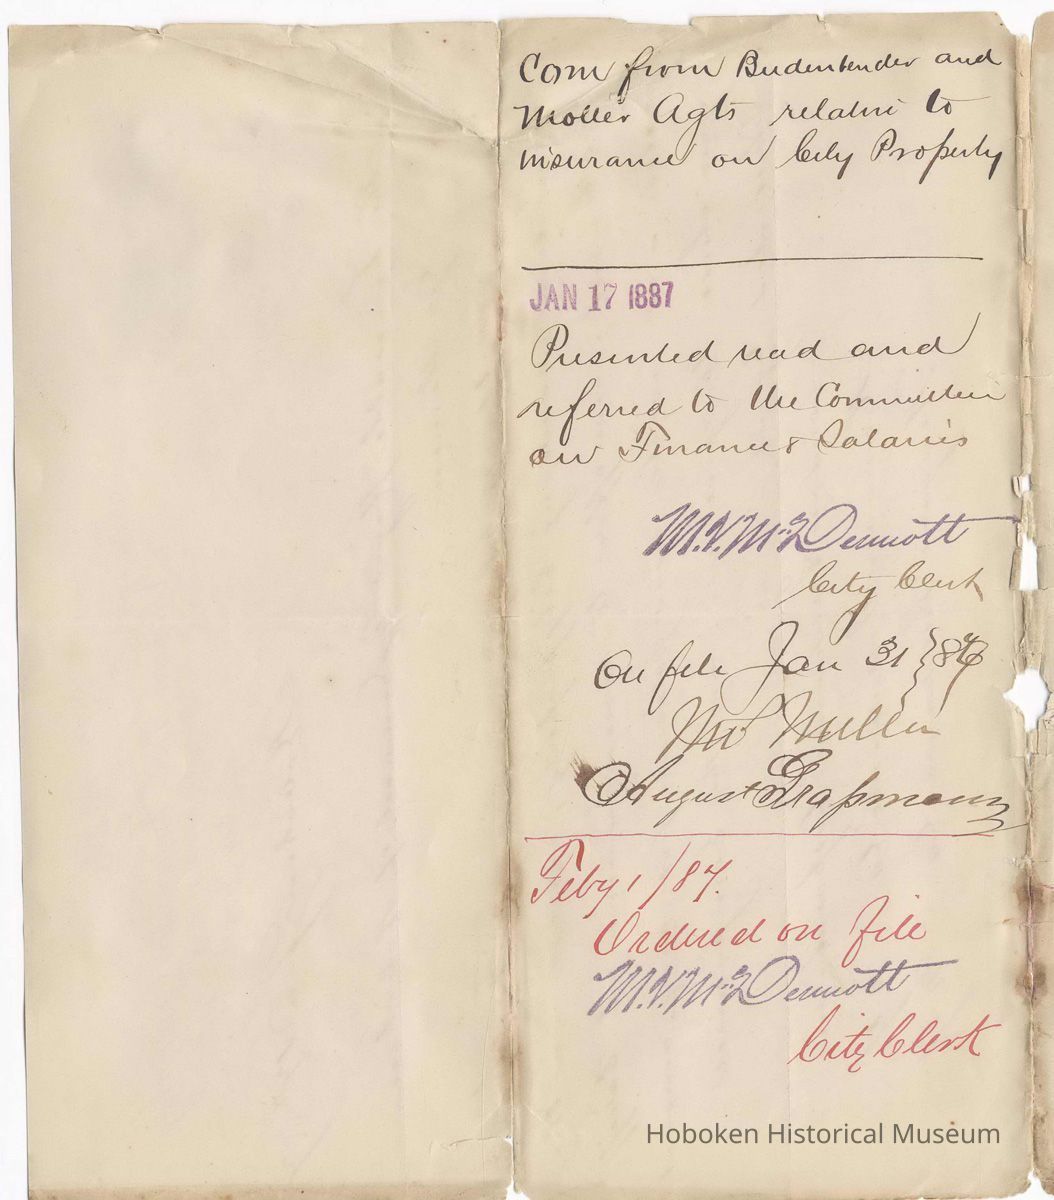 Com from Budenbender and
Moller Agts relative to
insurance on City Property
JAN 17 1887
Presented read and
referred to the Committee
on Finance & Salaries
M.V. McDermott
City Clerk
On file Jan 31 } 87
Miller
August Grassmann
Feby 1/87.
Ordered on file
M.V. McDermott
City Clerk
Hoboken Historical Museum